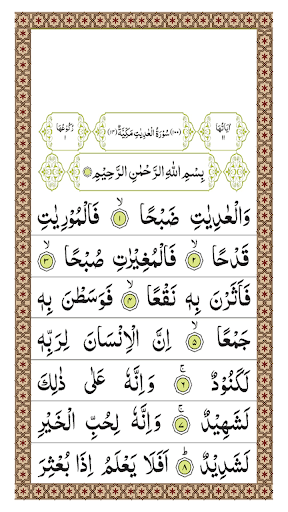 اٰيَاتُهَا ١١ (١٠٠) سُوْرَةُ الْعٰدِيٰتِ مَكِّيَّةٌ (١٤) رُكُوْعُهَا ١
بِسْمِ اللّٰهِ الرَّحْمٰنِ الرَّحِيْمِ
وَالْعٰدِيٰتِ ضَبْحًا ۙ ١ فَالْمُوْرِيٰتِ
قَدْحًا ۙ ٢ فَالْمُغِيْرٰتِ صُبْحًا ۙ ٣
فَاَثَرْنَ بِهٖ نَقْعًا ۙ ٤ فَوَسَطْنَ بِهٖ
جَمْعًا ۙ ٥ اِنَّ الْاِنْسَانَ لِرَبِّهٖ
لَكَنُوْدٌ ۚ ٦ وَاِنَّهٗ عَلٰى ذٰلِكَ
لَشَهِيْدٌ ۚ ٧ وَاِنَّهٗ لِحُبِّ الْخَيْرِ
لَشَدِيْدٌ ؕ ٨ اَفَلَا يَعْلَمُ اِذَا بُعْثِرَ